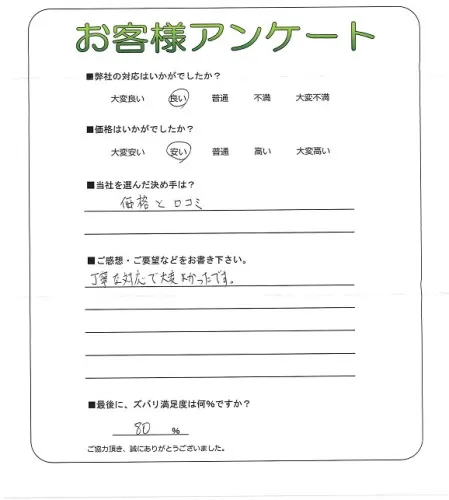 お客様アンケート
■弊社の対応はいかがでしたか？
大変良い 良い 普通 不満 大変不満
■価格はいかがでしたか？
大変安い 安い 普通 高い 大変高い
■当社を選んだ決め手は？
価格と口コミ
■ご感想・ご要望などをお書き下さい。
丁寧な対応で大変よかったです。
■最後に、ズバリ満足度は何％ですか？
80 ％
ご協力頂き、誠にありがとうございました。